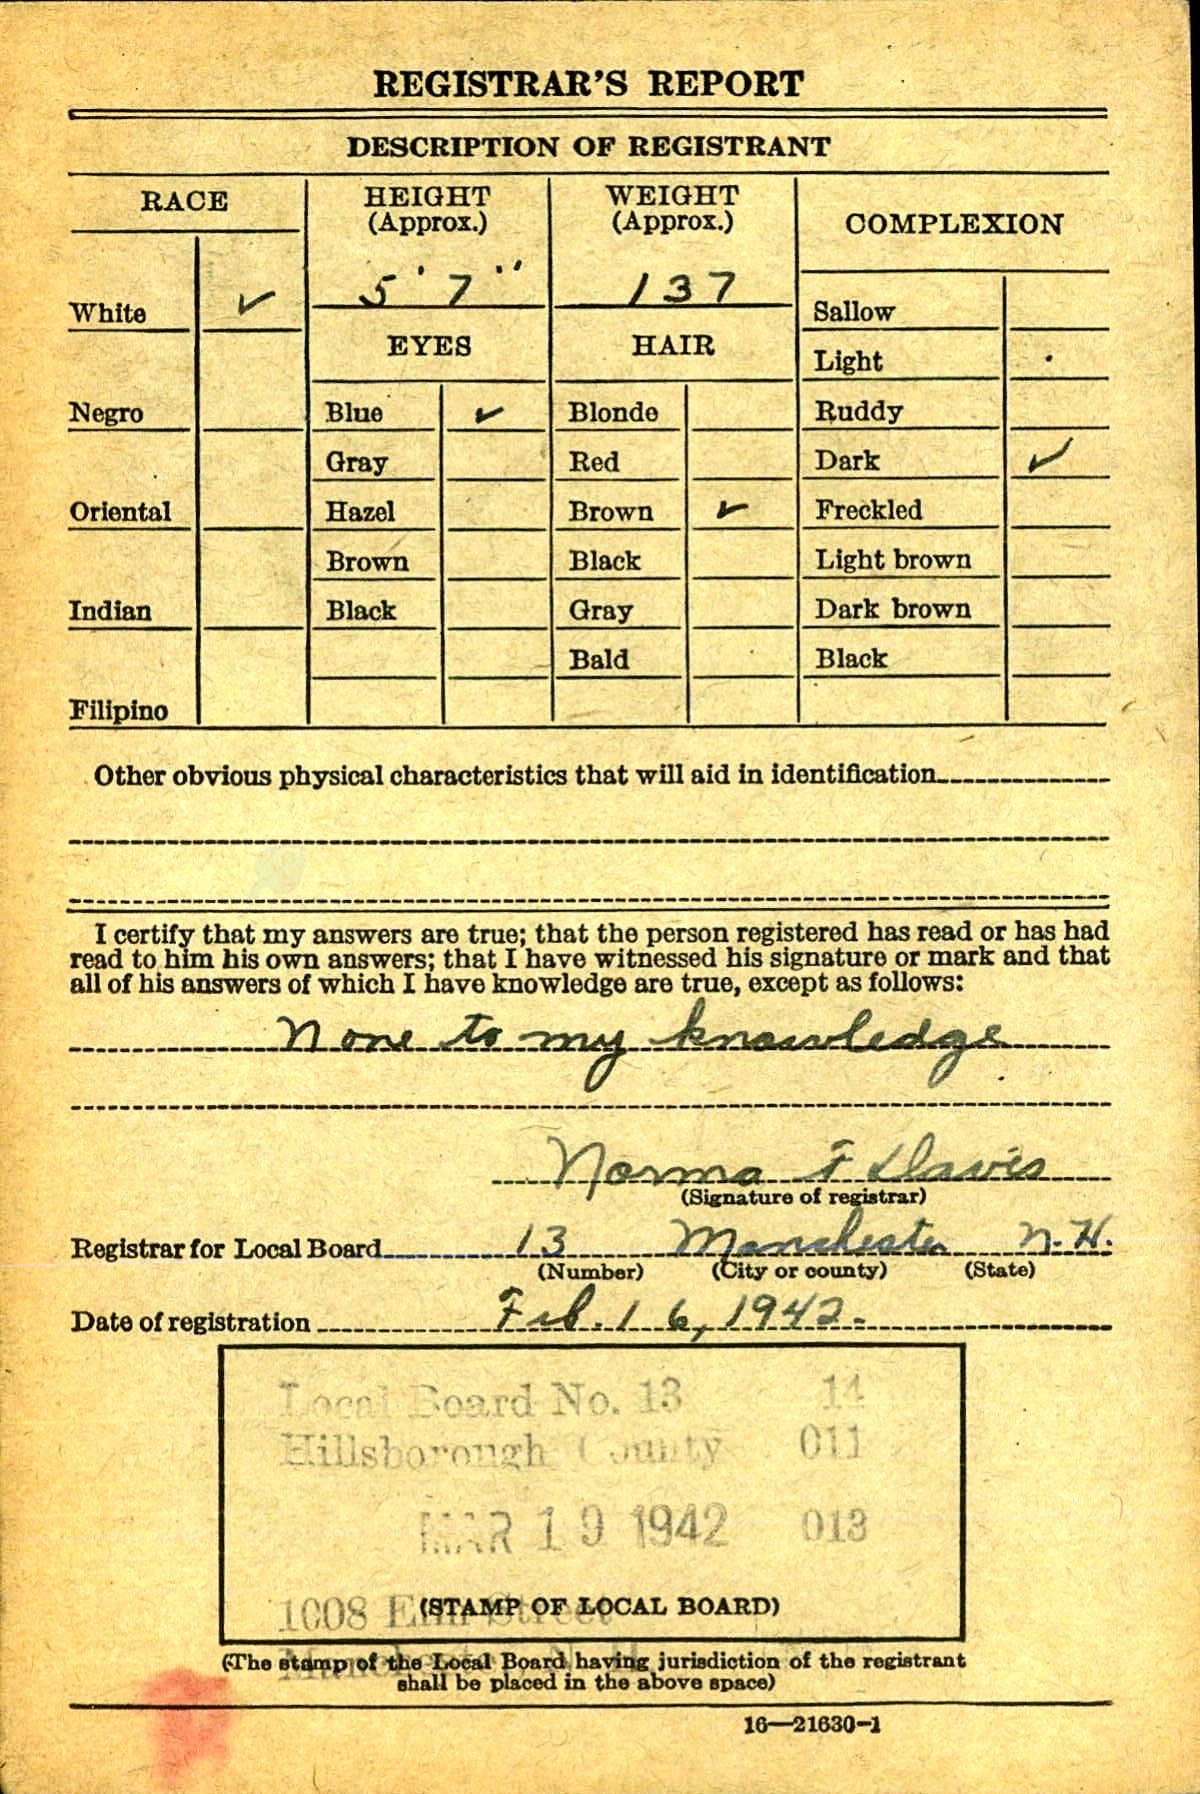 REGISTRAR'S REPORT
DESCRIPTION OF REGISTRANT
RACE
HEIGHT
(Approx.)
WEIGHT
(Approx.)
COMPLEXION
White ✓
5' 7''
137
Sallow
EYES
HAIR
Light
Negro
Blue ✓
Blonde
Ruddy
Gray
Red
Dark ✓
Oriental
Hazel
Brown ✓
Freckled
Brown
Black
Light brown
Indian
Black
Gray
Dark brown
Bald
Black
Filipino
Other obvious physical characteristics that will aid in identification
I certify that my answers are true; that the person registered has read or has had
read to him his own answers; that I have witnessed his signature or mark and that
all of his answers of which I have knowledge are true, except as follows:
None to my knowledge
Norma F Davis
(Signature of registrar)
Registrar for Local Board 13 Manchester N.H.
(Number) (City or county) (State)
Date of registration Feb. 16, 1942.
Local Board No. 13 14
Hillsborough County 011
MAR 19 1942 013
1008 Elm Street
(STAMP OF LOCAL BOARD)
Manchester, N. H.
(The stamp of the Local Board having jurisdiction of the registrant
shall be placed in the above space)
16—21630-1